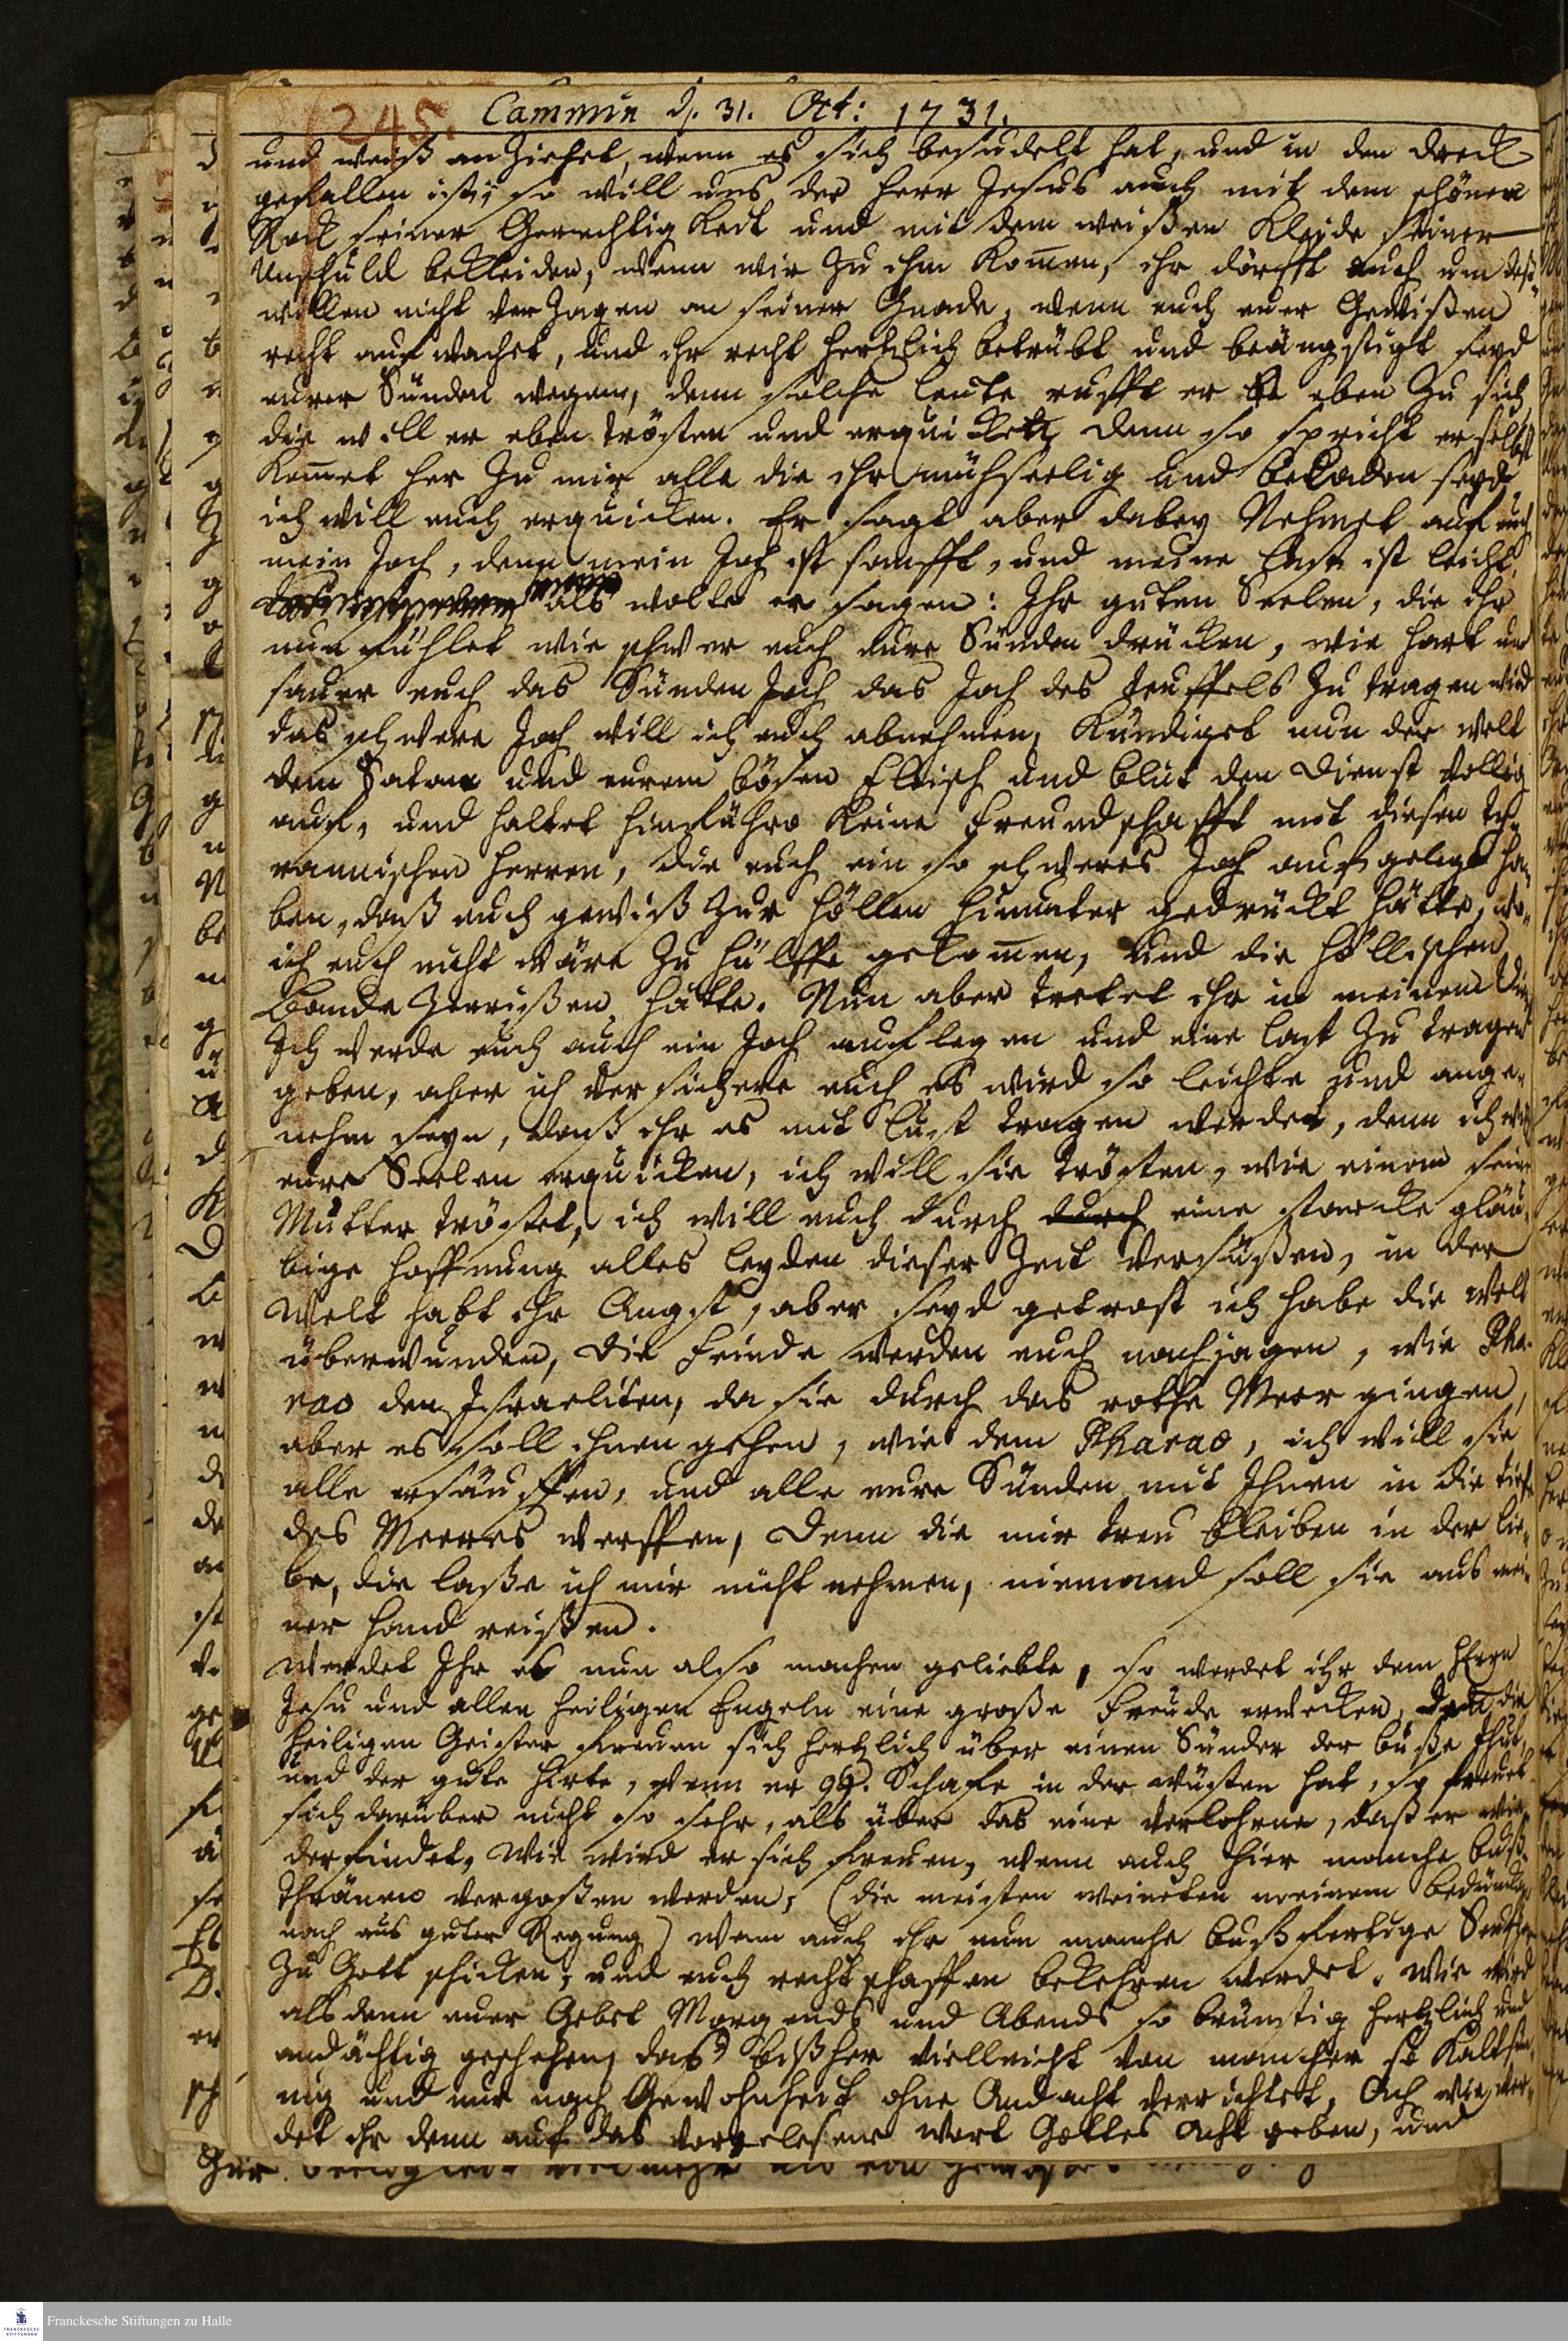 245.
Cammin d. 31. Oct: 1731.
und weiß anziehet, wenn es sich besudelt hat, und in den dreck
gefallen ist, so will uns der Herr Jesus auch mit dem schönen
Rock seiner Gerechtigkeit und mit dem weißen Kleide seiner
Unschuld bekleiden, wenn wir zu ihm kom̄en, ihr dörfft auch um deß¬
willen nicht verzagen an seiner Gnade, wenn euch euer Gewißen
recht aufwachet, und ihr recht hertzlich betrübt und beängstigt seyd
eurer Sünden wegen, denn solche leute rufft er eben zu sich
die will er eben trösten und erquicken, denn so spricht er selbst
Kom̄et her zu mir alle die ihr mühseelig und beladen seyd
ich will euch erquicken. Er sagt aber dabey Nehmet auf euch
mein Joch, denn mein Joch ist sanfft, und meine Last ist leicht.
als wolte er sagen: Ihr guten Seelen, die ihr
nun fühlet wie schwer euch eure Sünden drücken, wie hart und
sauer euch das Sünden Joch das Joch des Teuffels zu tragen wird
das schwere Joch will ich euch abnehmen, Kündiget nun der Welt
dem Satan und eurem bösen Fleisch und Blut den Dienst völlig
auf, und haltet hinführo keine Freundschafft mit diesen ty¬
rannischen Herren, die euch ein so schweres Joch aufgelegt ha¬
ben, daß euch gewiß zur Höllen hinunter gedrückt hätte, wo
ich euch nicht wäre zu hülffe gekom̄en, und die höllischen
Bande zerrißen hätte. Nun aber tretet ihr in meinem
Ich werde euch auch ein Joch auflegen und eine last zu tragen
geben, aber ich versichere euch es wird so leichte und ange¬
nehm seyn, daß ihr es mit Lust tragen werdet, denn ich will
eure Seelen erquicken, ich will sie trösten, wie einem seine
Mutter tröstet, ich will euch durch durch eine starcke gläu¬
bige Hoffnung alles leyden dieser Zeit versüßen, in der
Welt habt ihr Angst, aber seyd getrost ich habe die Welt
überwunden, die Feinde werden euch nachjagen, wie Pha¬
rao den Israeliten, da sie durch das rothe Meer gingen,
aber es soll ihnen gehen, wie dem Pharao, ich will sie
alle ersäuffen, und alle eure Sünden mit Ihnen in die tieffe
des Meeres werffen, denn die mir treu bleiben in der Lie¬
be, die laße ich mir nicht nehmen, niemand soll sie aus mei¬
ner Hand reißen.
Werdet Ihr es nun also machen geliebte, so werdet ihr dem HErrn
Jesu und allen heiligen Engeln eine große Freude erwecken, denn die
heiligen Geister freuen sich hertzlich über einen Sünder der buße thut,
und der gute Hirte, wenn er 99. Schafe in der wüsten hat, so freuet
sich darüber nicht so sehr, als über das eine verlohrne, daß er wie¬
derfindet, Wie wird er sich freuen, wenn auch hier manche Buß¬
thränen vergoßen werden, (die meisten weineten meinem bedüncken
nach aus guter Regung) wenn auch ihr nun manche bußfertige Seuftzer
zu Gott schicken, und euch rechtschaffen bekehren werdet. Wie wird
alsdenn euer Gebet Morgends und Abends so brünstig hertzlich und
andächtig geschehen, das bißher vielleicht von mancher so kaltsin¬
nig und nur nach Gewohnheit ohne Andacht verrichtet, Ach wie wer¬
det ihr denn auf das vorgelesene wort Gottes acht geben, und
Franckesche Stiftungen zu Halle